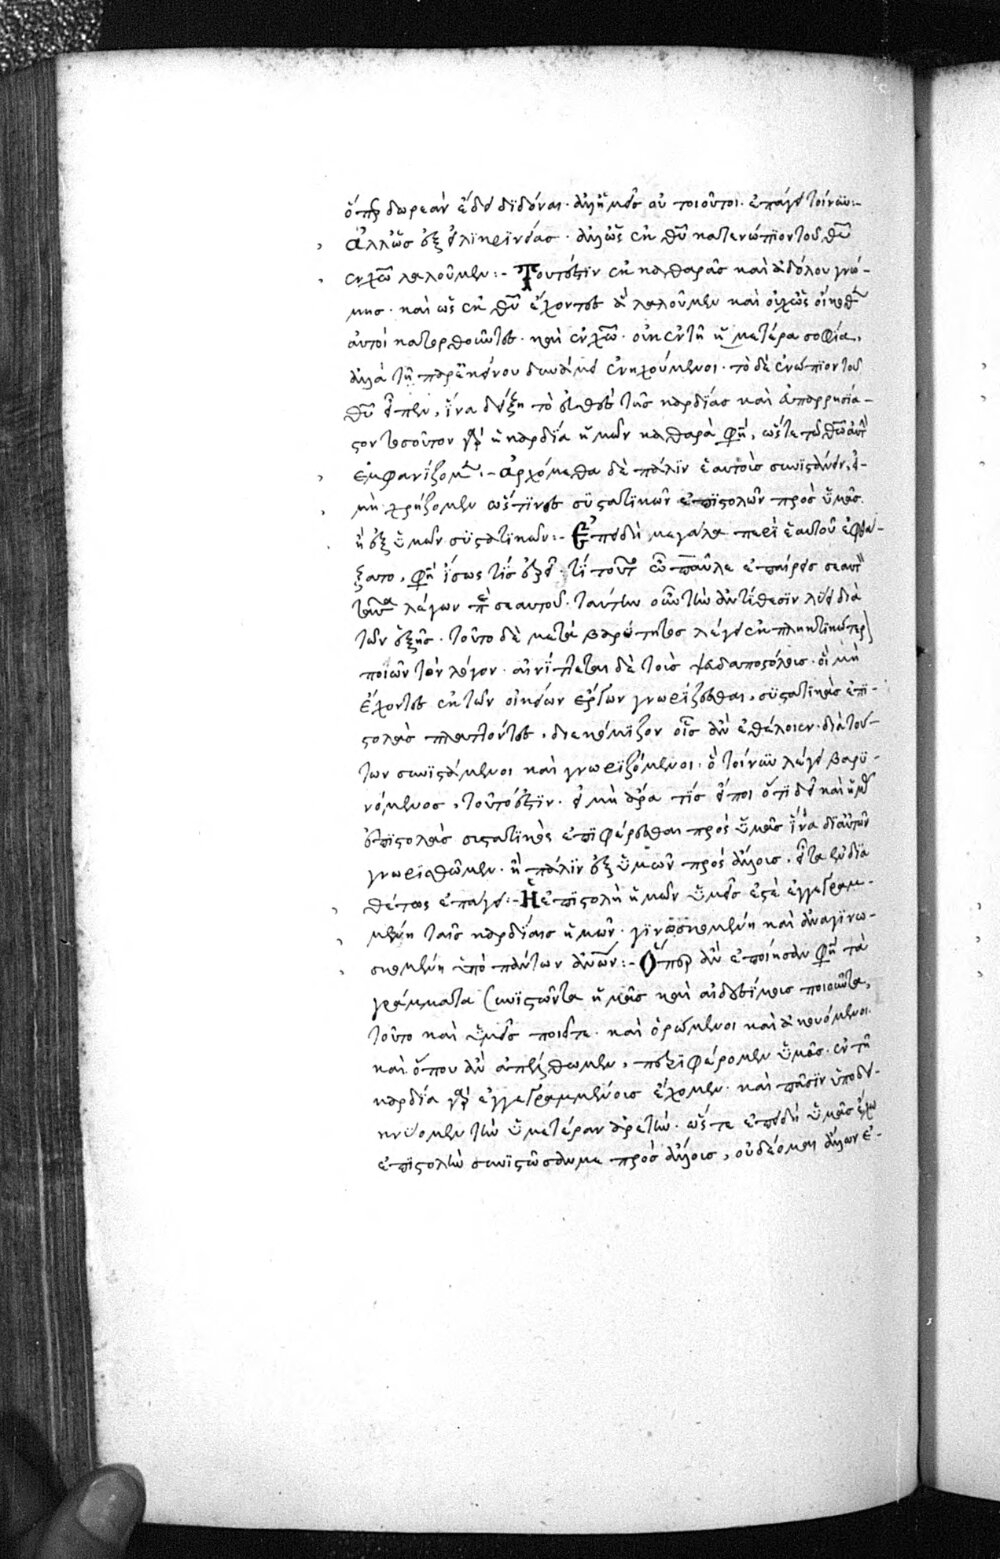 ὅπερ δωρεὰν ἔδει διδόναι. ἀλλ' ἡμεῖς οὐ τοιοῦτοι. ἐπάγει τοίνυν:-
Ἀλλ' ὡς ἐξ εἰλικρινείας. ἀλλ' ὡς ἐκ θῦ κατενώπιον τοῦ θῦ
ἐν χῶ λαλοῦμεν:- Τουτέστιν ἐκ καθαρᾶς καὶ ἀδόλου γνώ-
μης. καὶ ὡς ἐκ θῦ ἔχοντες ἃ λαλοῦμεν καὶ οὐχ ὡς οἴκοθεν
αὐτοὶ κατορθοῦντες. καὶ ἐν χῶ. οὐκ ἐν τῇ ἡμετέρα σοφία,
ἀλλὰ τῇ παρ' ἐκείνου δυνάμει ἐνηχούμενοι. τὸ δὲ ἐνώπιον τοῦ
θῦ εἶπεν, ἵνα δείξη τὸ εὐθὲς τῆς καρδίας καὶ ἀπαρρησία-
ςον τοσοῦτον γὰρ ἡ καρδία ἡμῶν καθαρὰ φησὶ, ὥςτε τῶ θῶ αὐτὴν
ἐμφανίζομεν:- ἀρχόμεθα δὲ πάλιν ἑαυτοὺς συνιςάνειν, εἰ
μὴ χρήζομεν ὥς τινες συςατικῶν ἐπιςολῶν πρὸς ὑμᾶς
ἢ ἐξ ὑμῶν συςατικῶν:- Ἐπειδὴ μεγάλα περὶ ἑαυτοῦ ἐφθέγ-
ξατο, φησὶ ἴσως τὶς ἐξεῖ τί τοῦτο ὦ παῦλε ἐπαίρεις σεαυτὸν
τοιαῦτα λέγων περὶ σεαυτοῦ. ταύτην οὖν τὴν ἀντίθεσιν λύει διὰ
τῶν ἑξῆς. τοῦτο δὲ μετὰ βαρύτητος λέγει ἐκπληκτικώτερον
ποιῶν τὸν λόγον. αἰνίττεται δὲ τοὺς ψευδαποςόλους. οἳ μὴ
ἔχοντες ἐκ τῶν οἰκείων ἔργων γνωρίζεσθαι, συςατικὰς ἐπι-
ςολὰς πλάττοντες, διεκόμιζον οἷς ἂν ἐθέλοιεν. διὰ τού-
των συνιςάμενοι καὶ γνωριζόμενοι. ὃ τοίνυν λέγει βαρυ-
νόμενος, τοῦτό ἐστιν. εἰ μὴ ἄρα τίς εἴποι ὅτι δεῖ καὶ ἡμᾶς
ἐπιςολὰς συςατικὰς ἐπιφέρεσθαι πρὸς ὑμᾶς ἵνα δι' αὐτῶν
γνωρισθῶμεν. ἢ πάλιν ἐξ ὑμῶν πρὸς ἄλλους. εἶτα ἐνδια
θέτως ἐπάγει:- Ἡ ἐπιςολὴ ἡμῶν ὑμεῖς ἐςὲ ἐγγεγραμ-
μένη ταῖς καρδίαις ἡμῶν. γινωσκομένη καὶ ἀναγινω-
σκομένη ὑπὸ πάντων ἀνων:- Ὅπερ ἂν ἐποίησαν φησὶ τὰ
γράμματα συνιςῶντα ἡμᾶς καὶ αἰδεσίμους ποιοῦντα,
τοῦτο καὶ ὑμεῖς ποιεῖτε. καὶ ὁρώμενοι καὶ ἀκουόμενοι.
καὶ ὅπου ἂν ἀπέλθωμεν, περιφέρομεν ὑμᾶς. ἐν τῇ
καρδία γὰρ ἐγγεγραμμένους ἔχομεν. καὶ πᾶσιν ὑποδει-
κνύομεν τὴν ὑμετέραν ἀρετὴν. ὥςτε ἐπειδὴ ὑμᾶς ἔχω
ἐπιςολὴν συνιςῶσάν με πρὸς ἄλλους, οὐ δέομαι ἄλλων ἐ-